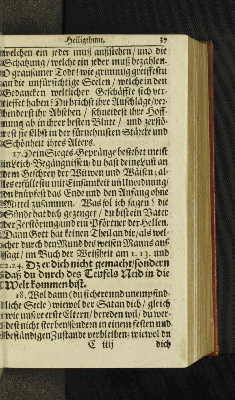 Heiligthum. 37
welchen ein jeder muß außstehen/ und die
Schatzung/ welche ein jeder muß bezahlen.
O grausamer Tod! wie grimmig greiffestu
an die unfürsichtige Seelen/ welche in den
Gedancken weltlicher Geschäffte sich ver-
tieffet haben: Du brichst ihre Anschläge/ ver-
hinderst ihr Absehen/ schneidest ihre Hoff-
nung ab in ihrer besten Blüte/ und zerstö-
rest sie selbst in der fürnehmsten Stärcke und
Schönheit ihres Alters.
17. Dein Sieges-Gepränge bestehet meist
in Leich-Begängnissen/ du hast deine Lust an
dem Geschrey der Witwen und Wäisen/ al-
les erfüllestu mit Einsamkeit und Unordnung/
du knüpfest das Ende und den Anfang ohne
Mittel zusammen. Was sol ich sagen? die
Sünde hat dich gezeuget/ du bist ein Vater
der Zerstörung/ und ein Pförtner der Hellen.
Dann Gott hat keinen Theil an dir/ als wel-
cher durch den Mund des weisen Manns auß-
sagt/ im Buch der Weißheit am 1. 13. und
2. 24. Dz er dich nicht gemacht/ sondern
daß du durch des Teufels Neid in die
Welt kommen bist.
18. Wol dann (du sichere und unempfind-
liche Seele) wiewol der Satan dich/ gleich
wie unsere erste Eltern/ bereden wil/ du wer-
dest nicht sterben/ sondern in einem festen und
beständigen Zustande verbleiben: wiewol du
C iiij dich